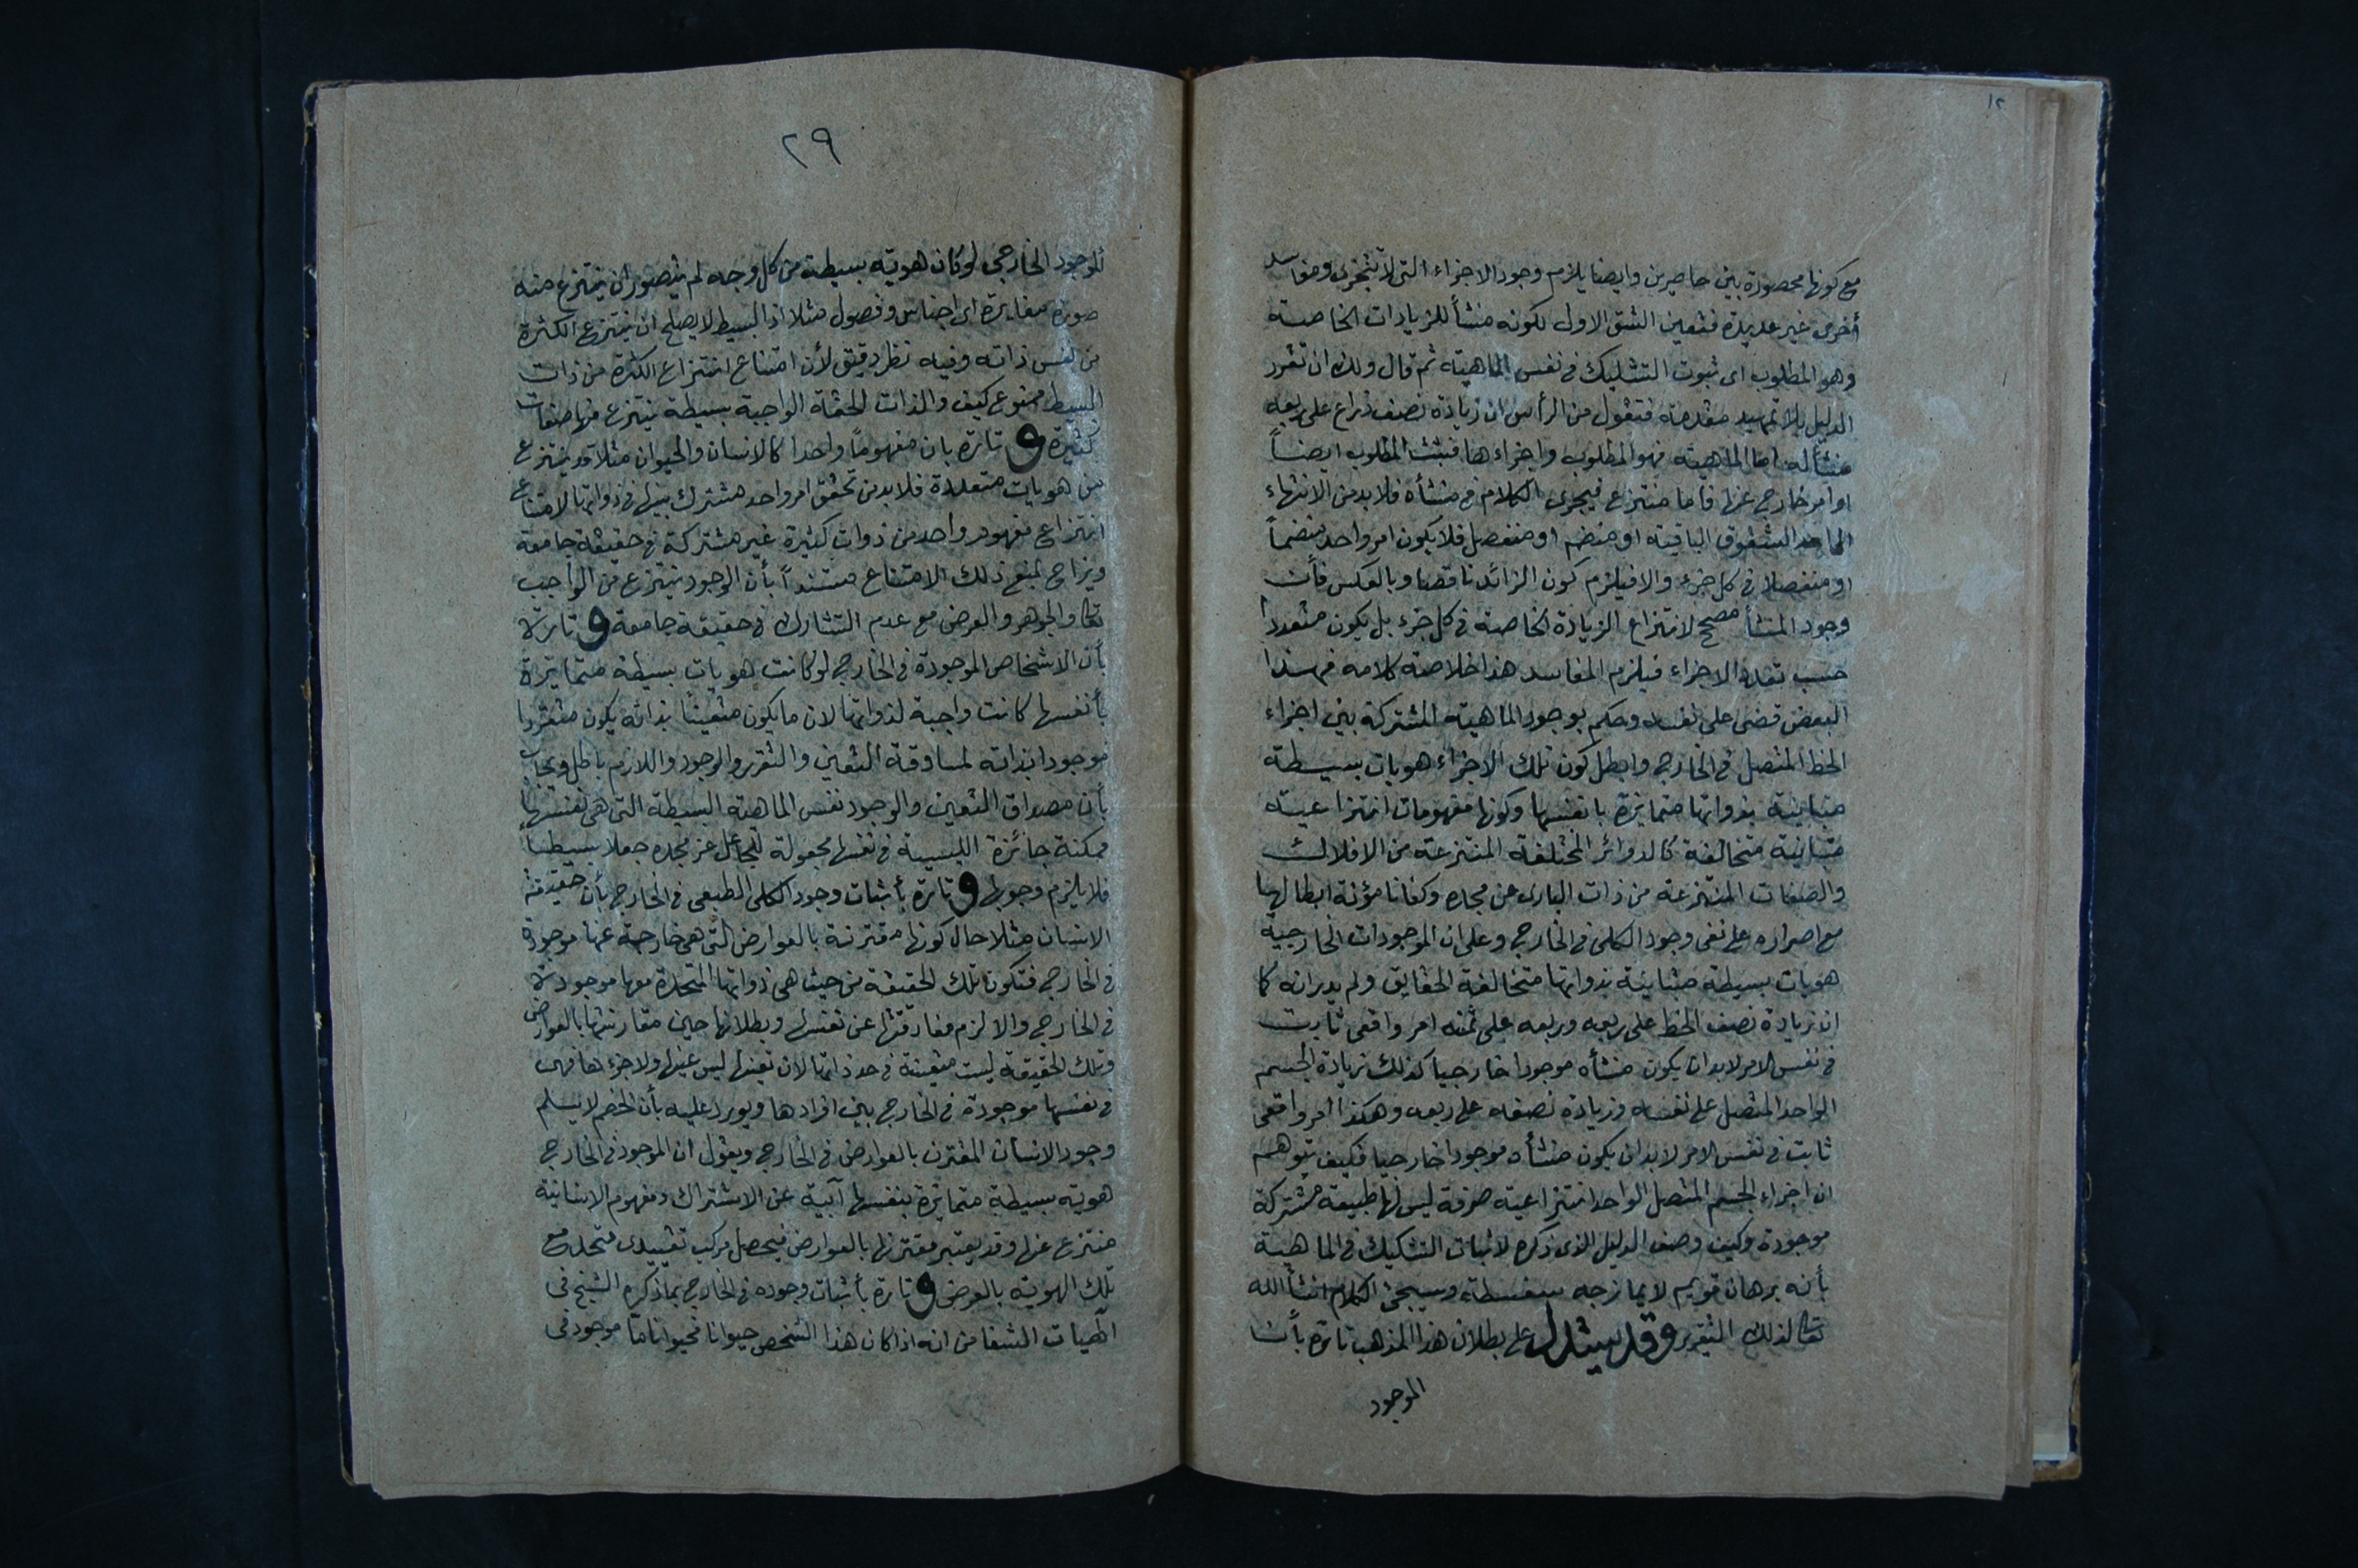 ١٢
مع كونها محصورة بين حاصرين وايضا يلزم وجود الاجزاء التى لا تتجزى ومفاسد
أخرى غير عديدة فتعين الشق الاول لكونه منشأ للزيادات الخاصة
وهو المطلوب اى ثبوت التشكيك فى نفس الماهية ثم قال ولك ان تقرر
الدليل بلا تمهيد مقدمة فتقول من الرأس ان زيادة نصف ذراع على ربعه
منشأ له اما الماهية فهو المطلوب واجزاءها فيثبت المطلوب ايضاً
او امر خارج عنها فأما منتزع فيجرى الكلام فى منشأه فلا بد من الانتهاء
الى احد الشقوق الباقية او منضم او منفصل فلا يكون امر واحد منضماً
او منفصلا فى كل جزء والا فيلزم كون الزائد ناقصا وبالعكس فأن
وجود المنشأ مصحح لانتزاع الزيادة الخاصة فى كل جزء بل يكون متعددا
حسب تعدد الاجزاء فيلزم المفاسد هذا خلاصة كلامه فهذا
البعض قضى على نفسه وحكم بوجود الماهية المشتركة بين اجزاء
الخط المتصل فى الخارج وابطل كون تلك الاجزاء هويات بسيطة
متباينة بذواتها متمايزة بانفسها وكونها مفهومات انتزاعية
متباينة متخالفة كالدوائر المختلفة المنتزعة من الافلاك
والصفات المنتزعة من ذات البارى عن مجده وكفانا مؤنة ابطالها
مع اصراره على نفى وجود الكلى فى الخارج وعلى ان الموجودات الخارجية
هويات بسيطة متباينة بذواتها متخالفة الحقايق ولم يدر انه كما
ان زيادة نصف الخط على ربعه وربعه على ثمنه امر واقعى ثابت
فى نفس الامر لا بد ان يكون منشأه موجودا خارجيا كذلك زيادة الجسم
الواحد المتصل على نفسه وزيادة نصفه على ربعه وهكذا امر واقعى
ثابت فى نفس الامر لا بد ان يكون منشأه موجودا خارجيا فكيف يتوهم
ان اجزاء الجسم المتصل الواحد انتزاعية صرفة ليس لها طبيعة مشتركة
موجودة وكيف وصف الدليل الذى ذكره لاثبات التشكيك فى الماهية
بأنه برهان قويم لا يمازجه سفسطة وسيجئ الكلام انشأ الله
تعالى لذلك التقرير وقد يستدل على بطلان هذا المذهب تارة بأن
الموجود
٢٩
الموجود الخارجى لو كان هوية بسيطة من كل وجه لم يتصور ان ينتزع منه
صورة مغايرة اى اجناس وفصول مثلا اذ البسيط لا يصلح ان ينتزع الكثرة
من نفس ذاته وفيه نظر دقيق لأن امتناع انتزاع الكثرة من ذات
البسيط ممنوع كيف والذات الحقة الواجبة بسيطة ينتزع منها صفات
كثيرة و تارة بان مفهوماً واحدا كالانسان والحيوان مثلا قد ينتزع
من هويات متعددة فلا بد من تحقق امر واحد مشترك بينها فى ذواتها لامتناع
انتزاع مفهوم واحد من ذوات كثيرة غير مشتركة فى حقيقة جامعة
ويزاح بمنع ذلك الامتناع مستنداً بأن الوجود ينتزع من الواجب
تعالى والجوهر والعرض مع عدم التشارك فى حقيقة جامعة و تارة
بأن الاشخاص الموجودة فى الخارج لو كانت هويات بسيطة متمايزة
بأنفسها كانت واجبة لذواتها لان ما يكون متعيناً بذاته يكون متقررا
موجودا بذاته لمساوقة التعين والتقرر والوجود واللازم باطل ويجاب
بأن مصداق التعين والوجود نفس الماهية البسيطة التى هى نفسها
ممكنة جائزة الليسية فى نفسها مجعولة للجاعل عز مجده جعلا بسيطاً
فلا يلزم وجوبها و تارة بأثبات وجود الكلى الطبعى فى الخارج بأن حقيقة
الانسان مثلا حال كونها مقترنة بالعوارض التى هى خارجة عنها موجودة
فى الخارج فتكون تلك الحقيقة من حيث هى ذواتها المتحدة معها موجودة
فى الخارج والا لزم مفارقتها عن نفسها وبطلانها حين مقارنتها بالعوارض
وتلك الحقيقة ليست متعينة فى حد ذاتها لان تعينها ليس عينها ولا جزءها فهى
فى نفسها موجودة فى الخارج بين افرادها ويورد عليه بأن الخصم لا يسلم
وجود الانسان المقترن بالعوارض فى الخارج ويقول ان الموجود فى الخارج
هوية بسيطة متمايزة بنفسها آبية عن الاشتراك ومفهوم الانسانية
منتزع عنها وقد يعتبر مقترنها بالعوارض فيحصل مركب تقييدى متحد مع
تلك الهوية بالعرض و تارة بأثبات وجوده فى الخارج بما ذكره الشيخ فى
آلهيات الشفا من انه اذا كان هذا الشخص حيوانا فحيوانا ما موجود فى